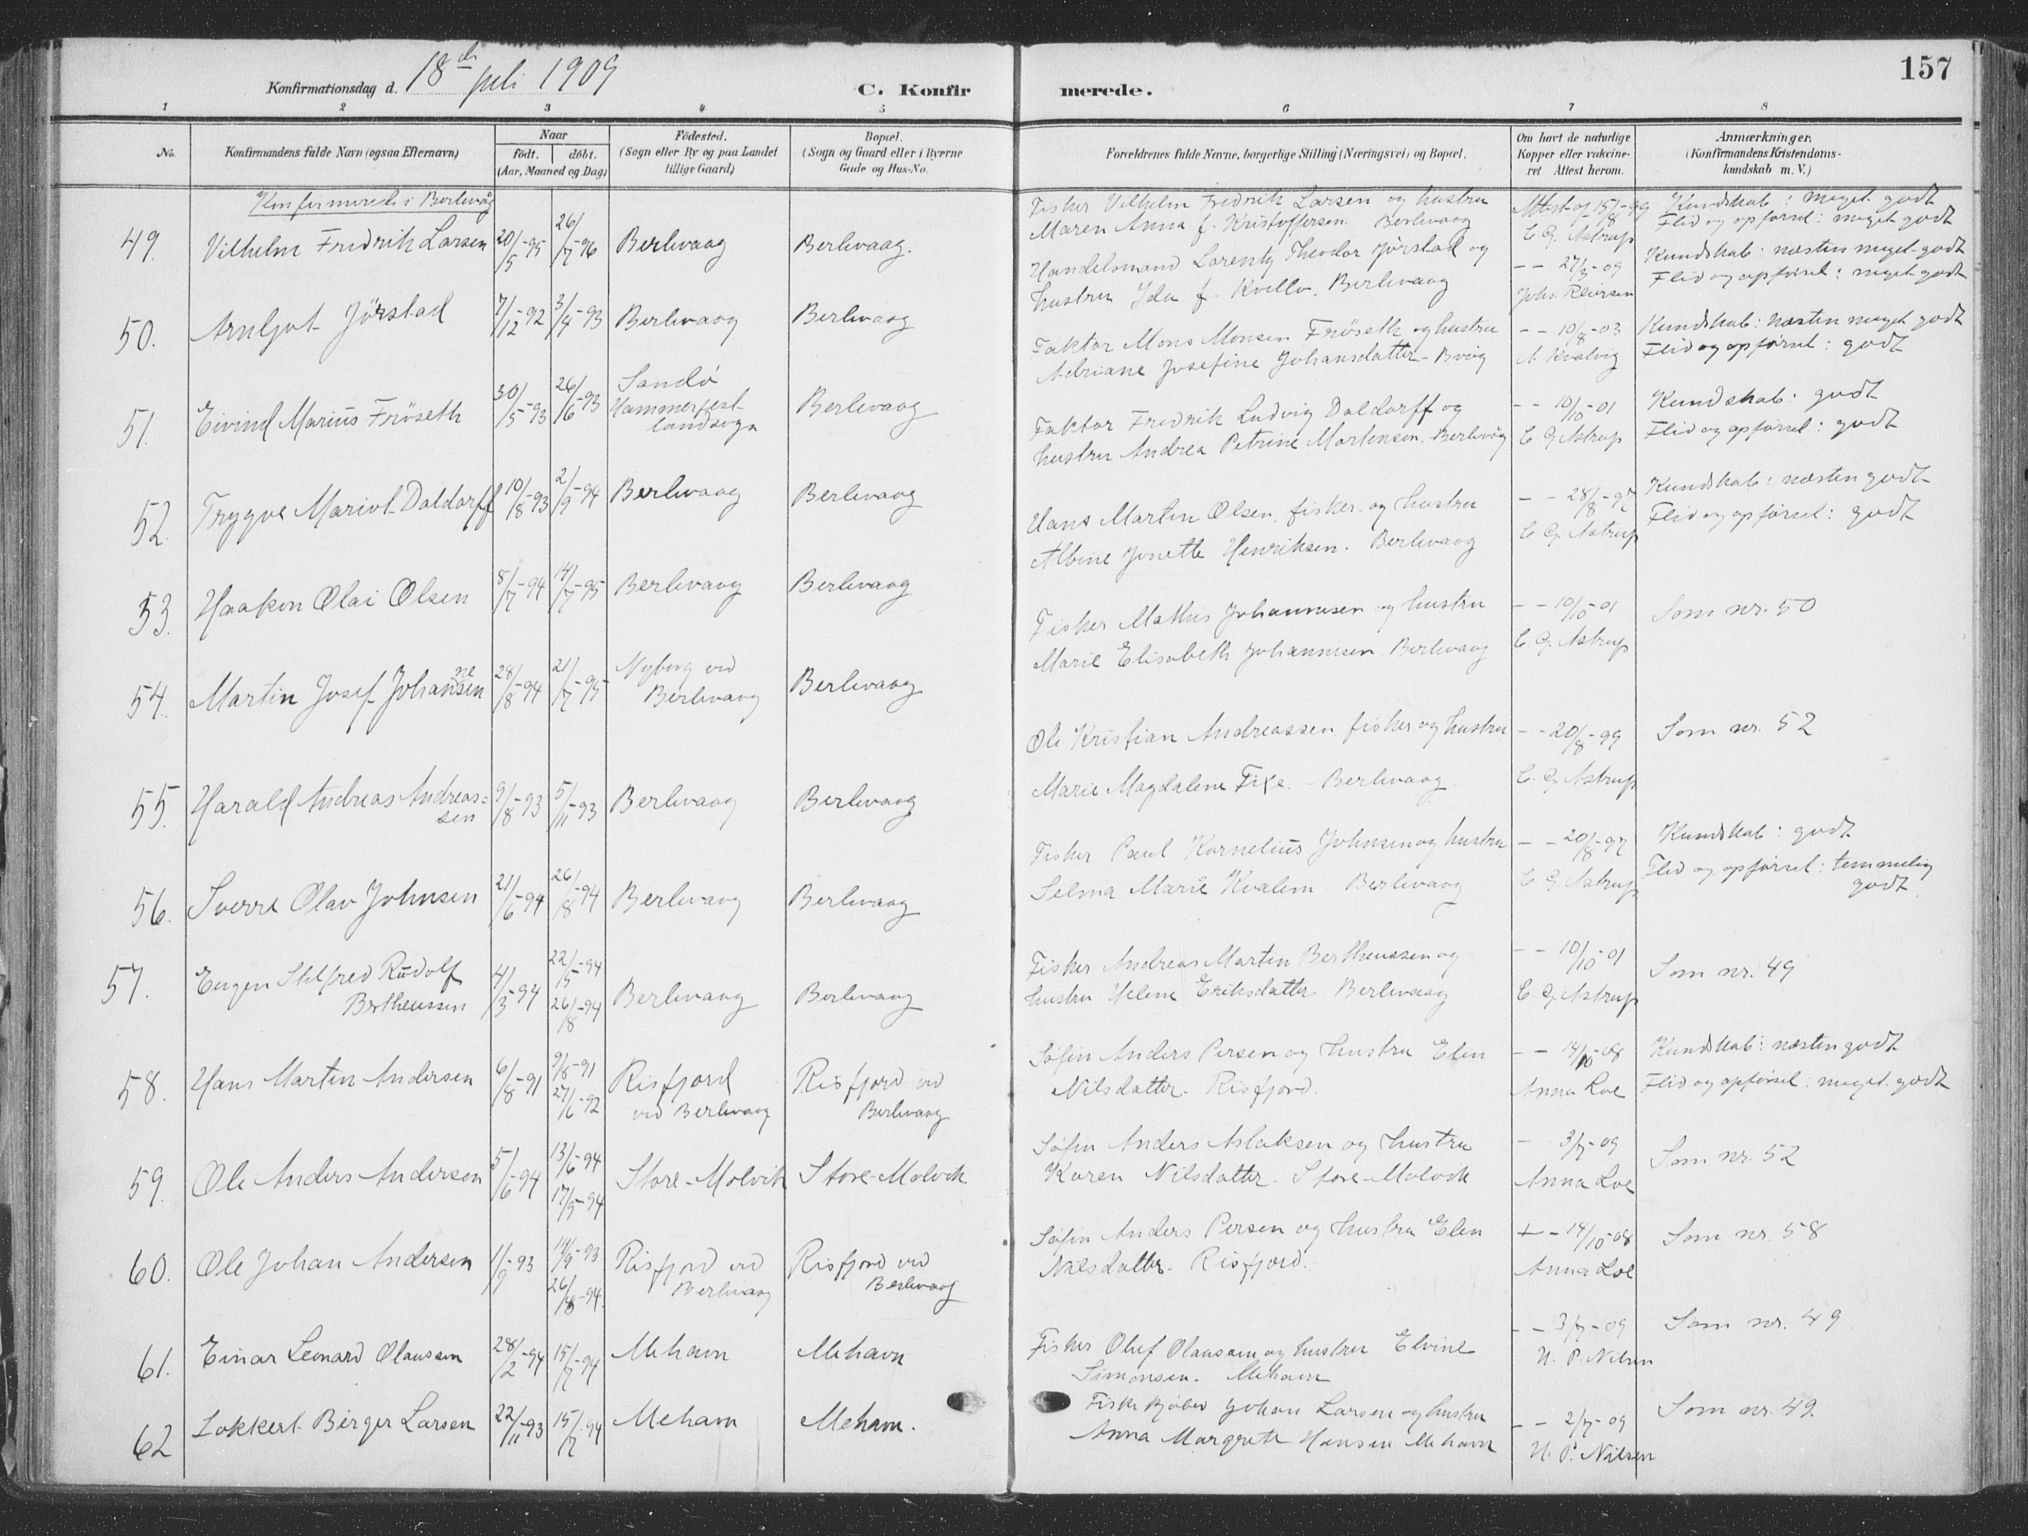 157
Konfirmationsdag d. 18de juli 1909
C. Konfirmerede.
1 2 3 4 5 6 7 8
No.
Konfirmandens fulde Navn (ogsaa Efternavn)
Naar
födt. döbt.
(Aar, Maaned og Dag)
Födested.
(Sogn eller By og paa Landet
tillige Gaard)
Bopæl.
(Sogn og Gaard eller i Byerne
Gade og Hus-No.
Forældrenes fulde Navne, borgerlige Stilling (Næringsvei) og Bopæl.
Om havt de naturlige
Kopper eller vakcine-
ret Attest herom.
Anmærkninger.
(Konfirmandens Kristendoms-
kundskab m. V.)
Konfirmeret i Berlevåg
49. Vilhelm Fredrik Larsen 20/5-95 26/7-96 Berlevaag Berlevaag.
Fisker Vilhelm Fredrik Larsen og hustru
Maren Anna f. Kristoffersen Berlevaag
Attest af 15/8-99
C. G. Astrup
Kundskab: meget godt
Flid og opförsel: meget godt
50. Arnljot Jörstad 7/12-92 3/4-93 Berlevaag Berlevaag
Handelsmand Lorentz Theodor Jörstad og
hustru Ida f. Kvello. Berlevaag
- - 27/3-09
Johs. Reiersen
Kundskab: næsten meget godt
Flid og opförsel: meget godt
51. Eivind Marius Fröseth 30/5-93 26/6-93 Sandö
Hammerfest
landsogn
Berlevaag
Faktor Mons Monsen Fröseth og hustru
Adriane Josefine Johansdatter - Bvåg
- - 10/8-03
A. Kvalvig
Kundskab: næsten meget godt
Flid og opförsel: godt
52. Trygve Mariot Daldorff 10/8-93 2/9-94 Berlevaag Berlevaag
Faktor Fredrik Ludvig Daldorff og
hustru Andrea Petrine Mortensen. Berlevåg
- - 10/10-01
C. G. Astrup
Kundskab: godt
Flid og opförsel: godt
53. Haakon Olai Olsen 8/7-94 14/7-95 Berlevaag Berlevaag
Hans Martin Olsen, fisker og hustru
Albine Jonette Henriksen. Berlevaag
- - 28/8-97
C. G. Astrup
Kundskab: næsten godt
Flid og opförsel: godt
54. Martin Josef Johannesen 28/8-94 21/7-95 Nyborg ved
Berlevaag
Berlevaag
Fisker Mathis Johannesen og hustru
Marie Elisabeth Johannesen Berlevaag
- - 10/10-01
C. G. Astrup
Som nr. 50
55. Harald Andreas Andreas=
sen
9/8-93 5/11-93 Berlevaag Berlevaag
Ole Kristian Andreassen fisker og hustru
Marie Magdalene Fixe. - Berlevaag
- - 20/8-99
C. G. Astrup
Som nr. 52
56. Sverre Olav Johnsen 21/6-94 26/8-94 Berlevaag Berlevaag
Fisker Paul Kornelius Johnsen og hustru
Selma Marie Kvalem Berlevaag
- - 20/8-97
C. G. Astrup
Kundskab: godt
Flid og opförsel: temmelig
godt
57. Eugen Stilfred Rudolf
Bertheussen
4/3-94 22/5-94
26/8-94
Berlevaag Berlevaag
Fisker Andreas Martin Bertheussen og
hustru Helene Eriksdatter Berlevaag
- - 10/10-01
C. G. Astrup
Som nr. 49
58. Hans Martin Andersen 6/8-91 27/6-92
Risfjord
ved Berlevaag
Risfjord ved
Berlevaag
Söfin Anders Persen og hustru Elen
Nilsdatter. Risfjord.
- - 14/10-08
Anna Loe
Kundskab: næsten godt
Flid og opförsel: meget godt
59. Ole Anders Andersen 5/6-94 13/6-94
17/9-94
Store-Molvik Store-Molvik
Söfin Anders Aslaksen og hustru
Karen Nilsdatter. Store-Molvik
- 3/7-09
Anna Loe
Som nr. 52
60. Ole Johan Andersen 1/9-93 14/9-93
26/8-94.
Risfjord ved
Berlevaag
Risfjord ved
Berlevaag
Söfin Anders Persen og hustru Elen
Nilsdatter. Risfjord.
- - 14/10-08
Anna Loe
Som nr. 58
61. Einar Leonard Olaussen 28/2-94 15/7-94 Mehavn Mehavn
Fisker Oluf Olaussen og hustru Elvine
Simonsen. Mehavn
- - 3/7-09
H. P. Nilsen
Som nr. 49
62 Lokkert Berger Larsen 22/11-93 15/7-94 Mehavn Mehavn.
Fiskekjöber Johan Larsen og hustru
Anna Margrete Hansen Mehavn
- - 2/7-09
H. P. Nilsen
Som nr. 49.